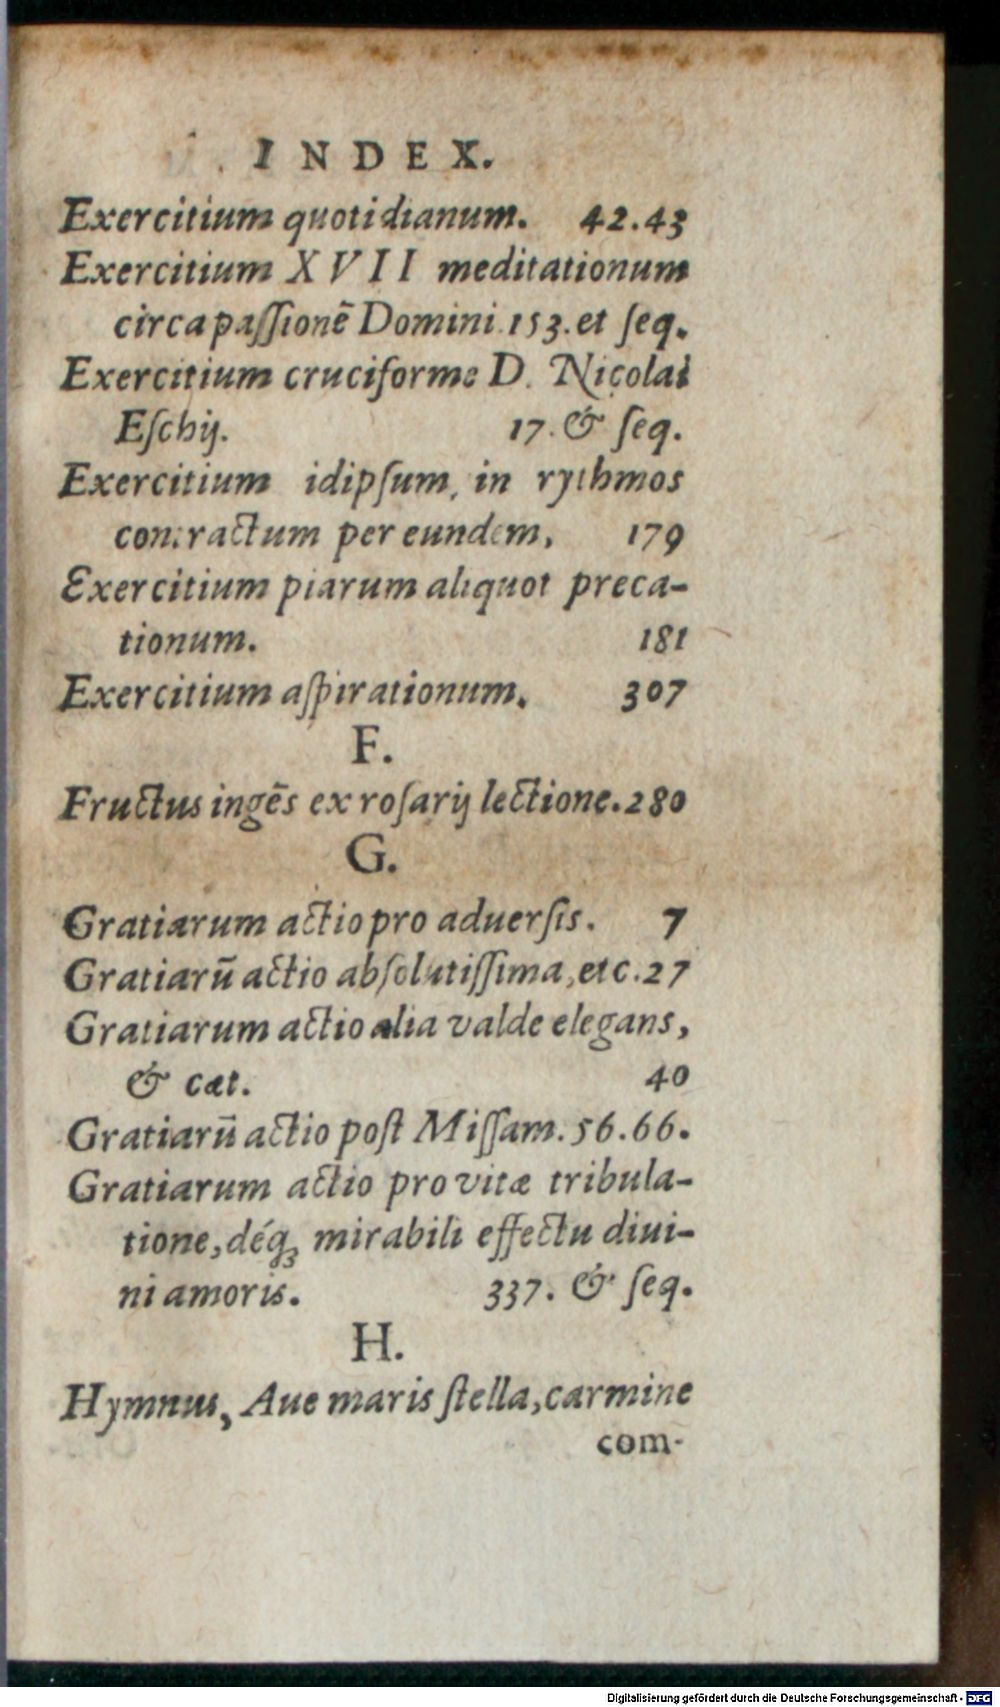 INDEX.
Exercitium quotidianum. 42.43
Exercitium XVII meditationum
circa paſſionē Domini.153.et ſeq.
Exercitium cruciforme D. Nicolai
Eſchij. 17. & ſeq.
Exercitium idipſum, in rythmos
contractum per eundem, 179
Exercitium piarum aliquot preca-
tionum. 181
Exercitium aſpirationum. 307
F.
Fructus ingēs ex roſarij lectione.280
G.
Gratiarum actio pro aduerſis. 7
Gratiarū actio abſolutiſſima,etc.27
Gratiarum actio alia valde elegans,
& cæt. 40
Gratiarū actio poſt Miſſam.56.66.
Gratiarum actio pro vitæ tribula-
tione,déq; mirabili effectu diui-
ni amoris. 337. & ſeq.
H.
Hymnus, Aue maris ſtella,carmine
com-
Digitalisierung gefördert durch die Deutsche Forschungsgemeinschaft - DFG